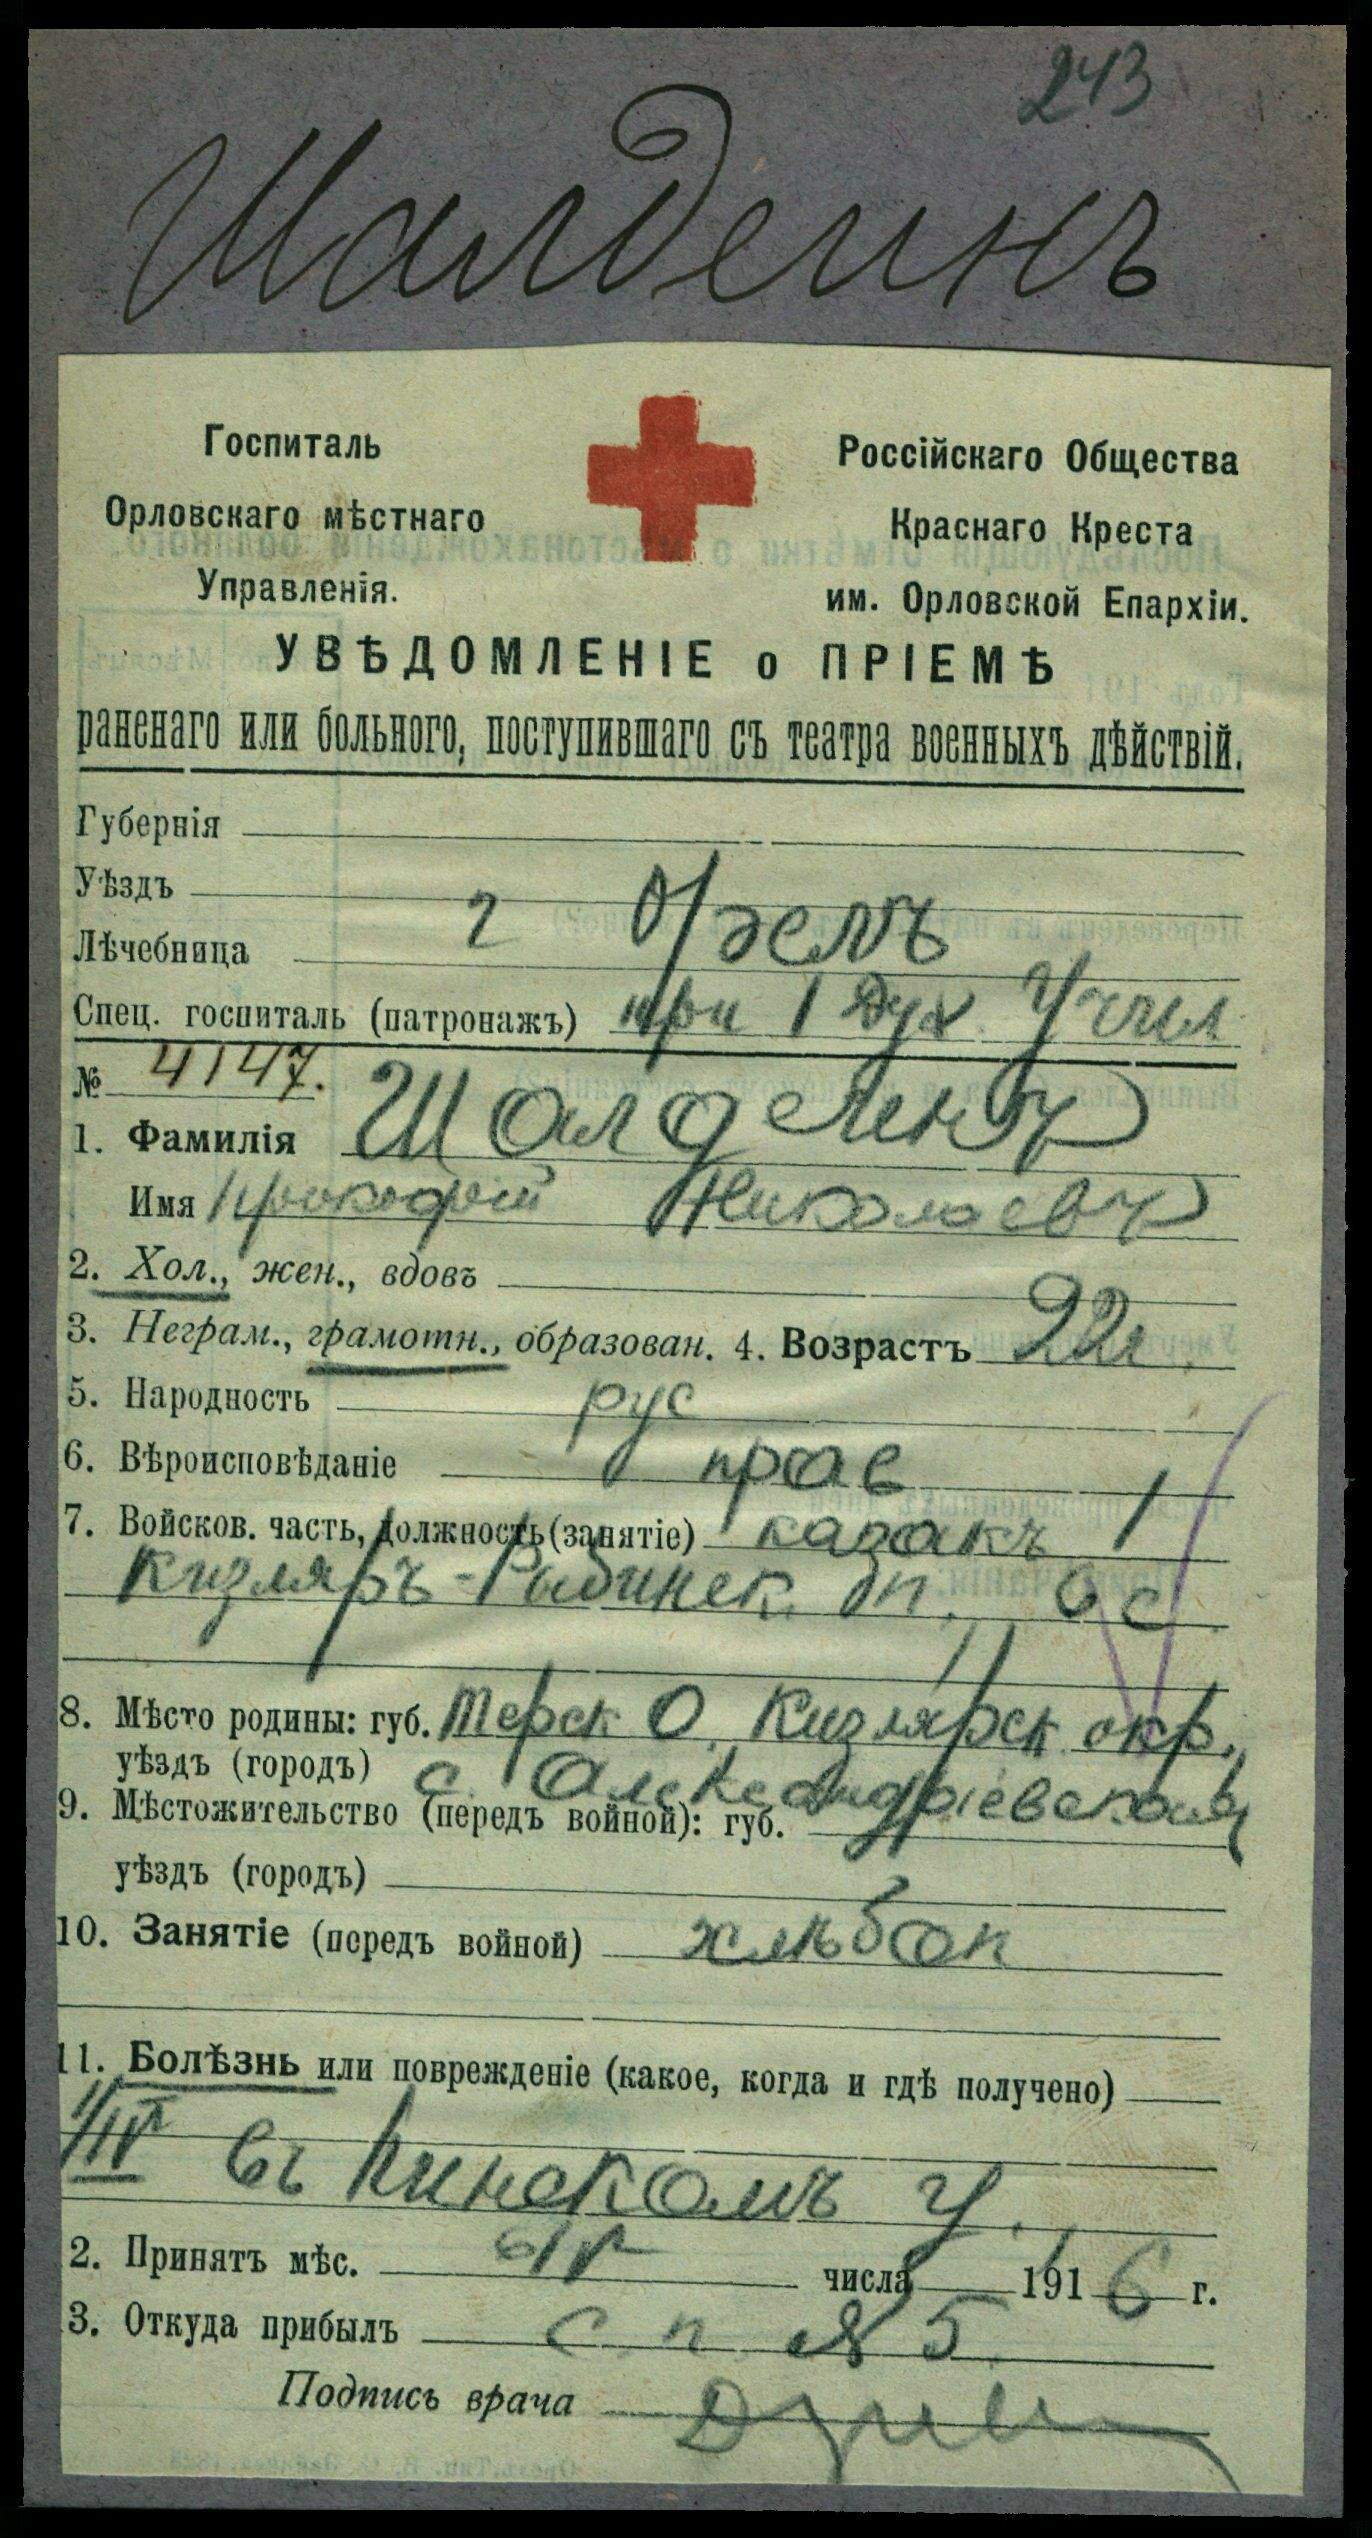 243
Шалдеинъ
Госпиталь
Орловскаго мѣстнаго
Управленія.
Россійскаго Общества
Краснаго Креста
им. Орловской Епархіи.
УВѢДОМЛЕНІЕ о ПРІЕМѢ
раненаго или больного, поступившаго съ театра военныхъ дѣйствій.
Губернія
Уѣздъ
Лѣчебница г Орелъ
Спец. госпиталь (патронажъ) при 1 Дух. Учил
№ 4147.
1. Фамилія Шалдеинъ
Имя Прокофій Николаевъ
2. Хол., жен., вдовъ
3. Неграм., грамотн., образован. 4. Возрастъ 22л
5. Народность рус
6. Вѣроисповѣданіе прав
7. Войсков. часть, должность (занятіе) казакъ 1
Кизляръ-Гребинск. п. 6 с
8. Мѣсто родины: губ. Терск О. Кизлярск окр.,
уѣздъ (городъ) с. Александріевской
9. Мѣстожительство (передъ войной): губ.
уѣздъ (городъ)
10. Занятіе (передъ войной) хлѣбоп
11. Болѣзнь или поврежденіе (какое, когда и гдѣ получено)
1/IV въ Пинскомъ у.
2. Принятъ мѣс. 6/V числа 1916 г.
3. Откуда прибылъ с. п. № 5
Подпись врача